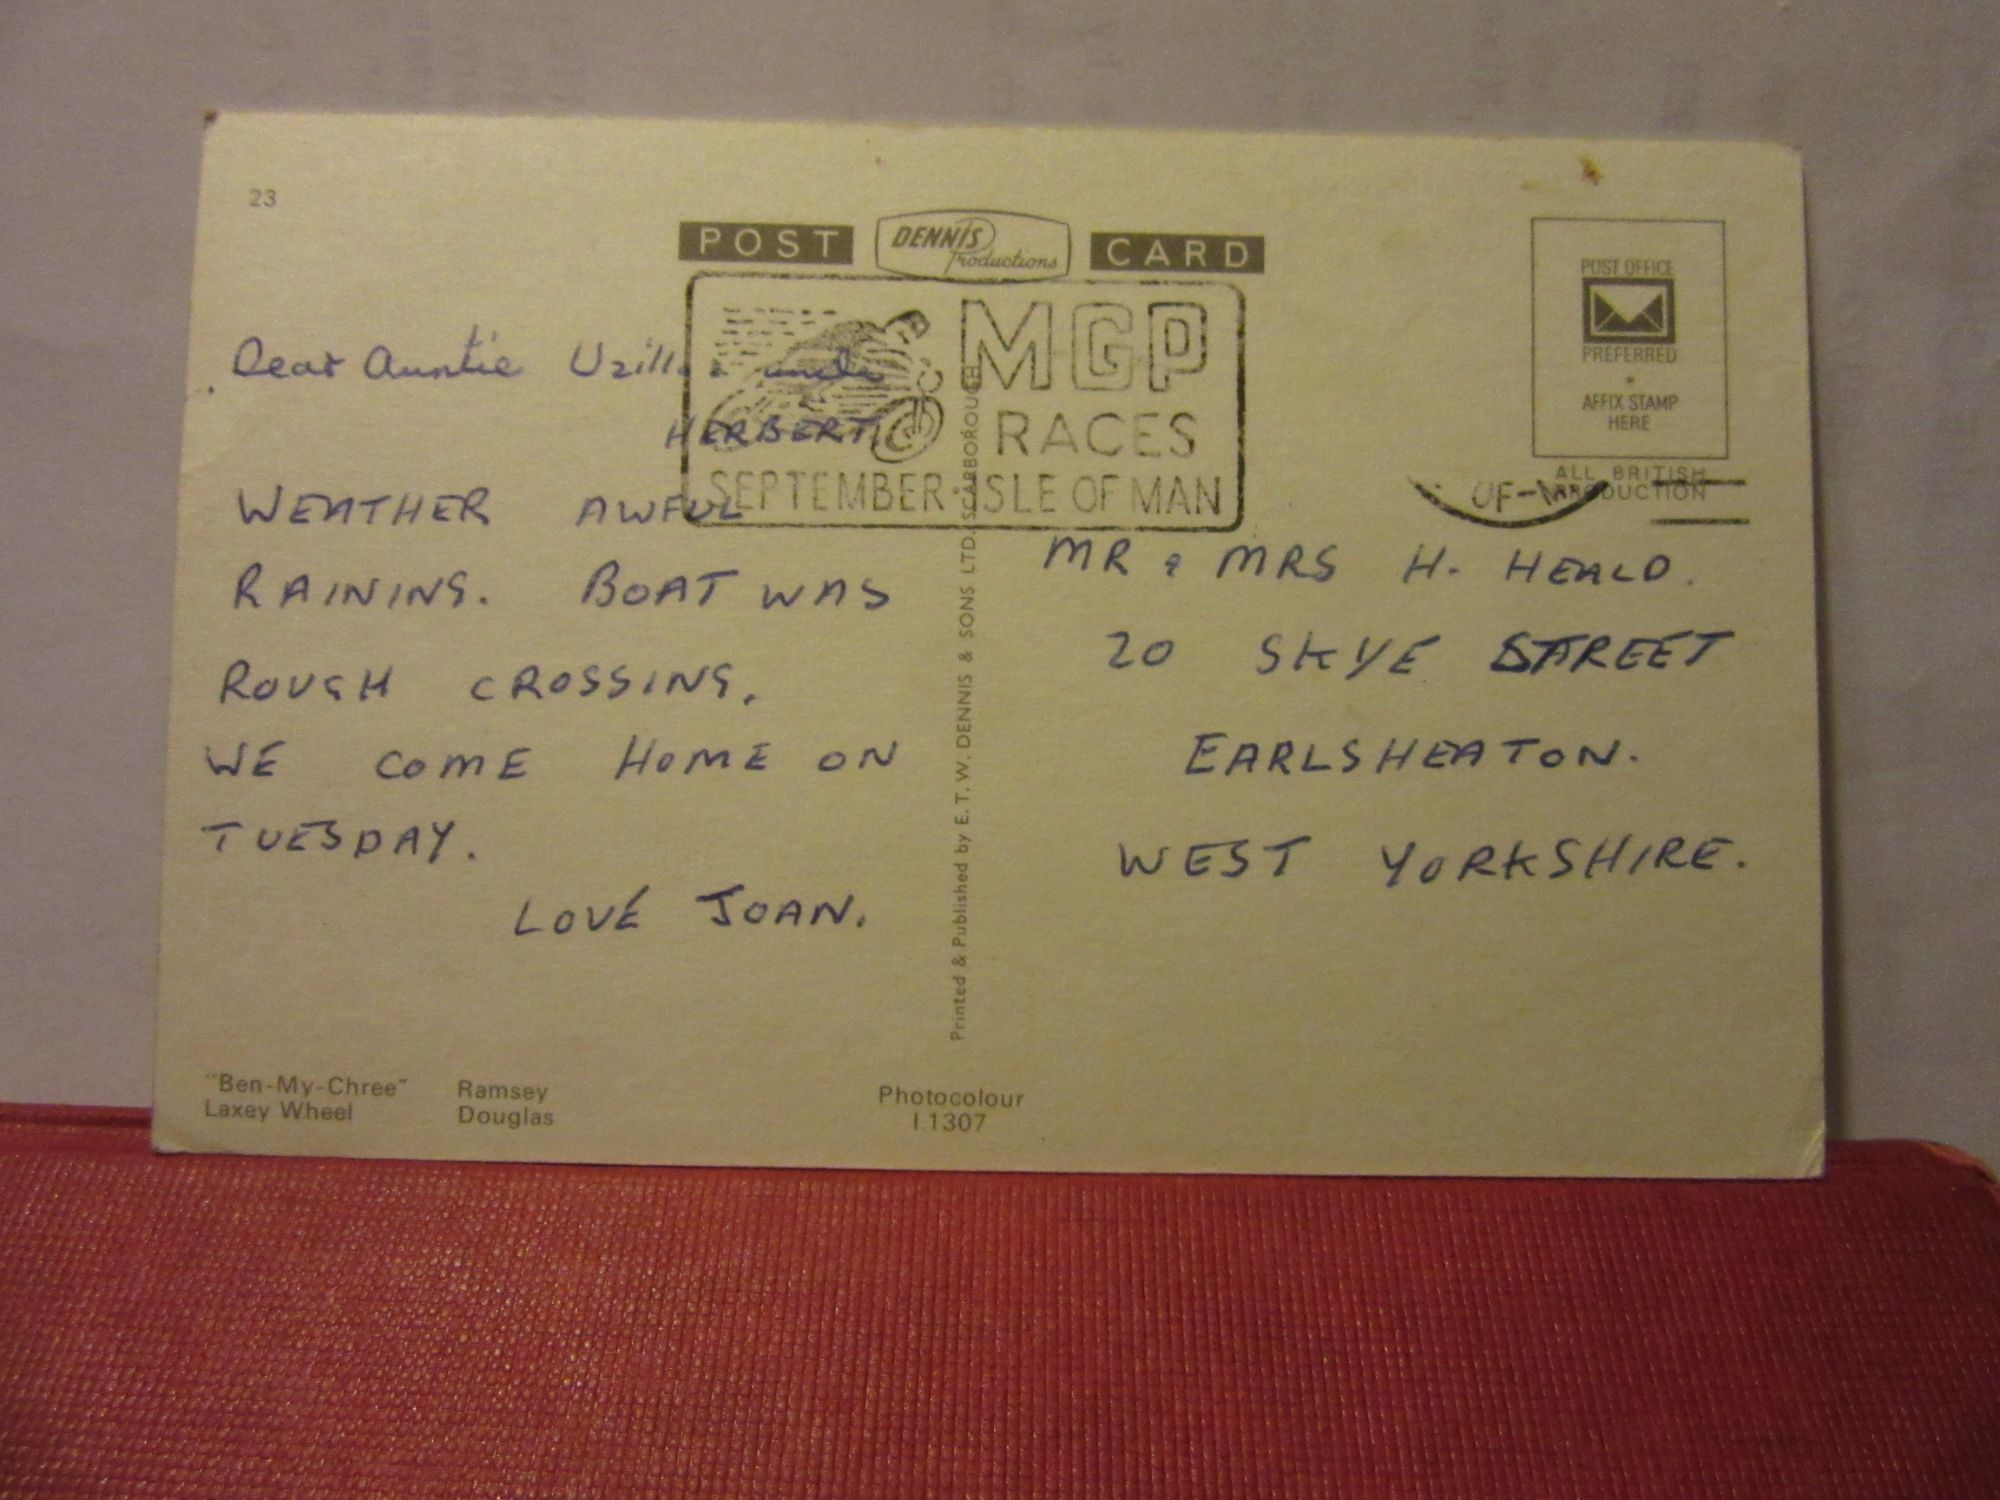 23
POST DENNIS Productions CARD
MGP
RACES
SEPTEMBER · ISLE OF MAN
POST OFFICE
PREFERRED
AFFIX STAMP
HERE
ALL BRITISH
PRODUCTION
OF-M
Dear Auntie & uncle
HERBERT
WEATHER AWFUL
RAINING. BOAT WAS
ROUGH CROSSING.
WE COME HOME ON
TUESDAY.
LOVE JOAN.
Printed & Published by E. T. W. DENNIS & SONS LTD. SCARBOROUGH
MR & MRS H. HEALD.
20 SKYE STREET
EARLSHEATON.
WEST YORKSHIRE.
"Ben-My-Chree" Ramsey
Laxey Wheel Douglas
Photocolour
I.1307